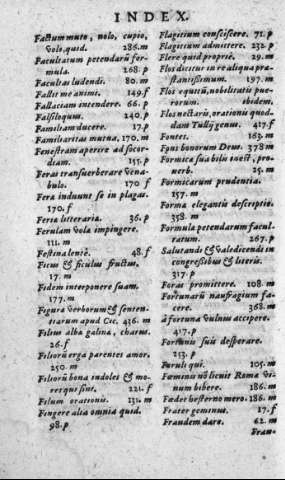 INDEX.
Factum muto, nolo, cupio,
volo, quid. 286.m
Facultatum petendarũ formula.
268.p
Facultas ludendi. 80.m
Fallit me animi. 149.f
Fallaciam intendere. 66.p
Falsiloquus. 240.p
Familiam ducere. 17.p
Familiaritas mutua, 170.m
Fenestram aperire ad socordiam.
151.p
Feras transuerberare venabulo.
170 f
Fera induunt se in plagas.
170.f
Feriæ literariæ. 36.p
Ferulam vola impingere.
111.m
Festina lentè. 48.f
Ficus & ficulus fructus.
17.m
Fidem interponere suam.
177.m
Figura verborum & sententiarum
apud Cic. 436.m
Filius albæ gallinæ, charus.
26.f
Filiorũ erga parentes amor.
250.m
Filiorũ bona indoles & mores
qui sint. 221.f
Filum orationis. 131.m
Fingere alia omnia quid.
98.p
Flagitium consciscere. 71.p
Flagitium admittere. 232.p
Flere quid propriè. 29.m
Flos dicitur in re aliqua præstantissimum.
197.m
Flos equitũ, nobilitatis puerorum.
ibidem.
Flos nectaris, orationis quoddam
Tullij genus. 417.f
Fontes. 163.m
Fons bonorum Deus. 378 m
Formica sua bilis inest, prouerb.
25.m
Formicarum prudentia.
157.m
Forma elegantis descriptio.
358.m
Formula petendarum facultatum.
267.p
Salutandi & valedicendi in
congressibus & literis.
317.p
Foras promittere. 108.m
Fortunarũ naufragium facere.
368.m
à fortuna vulnus accipere.
417.p
Fortunis suis desperare.
253.p
Furuli qui. 105.m
Fæminis nõ licuit Romæ vinum
bibere. 186.m
Fæder hesterno mero. 186.m
Frater geminus. 17.f
Fraudem dare. 62.m
Frau-